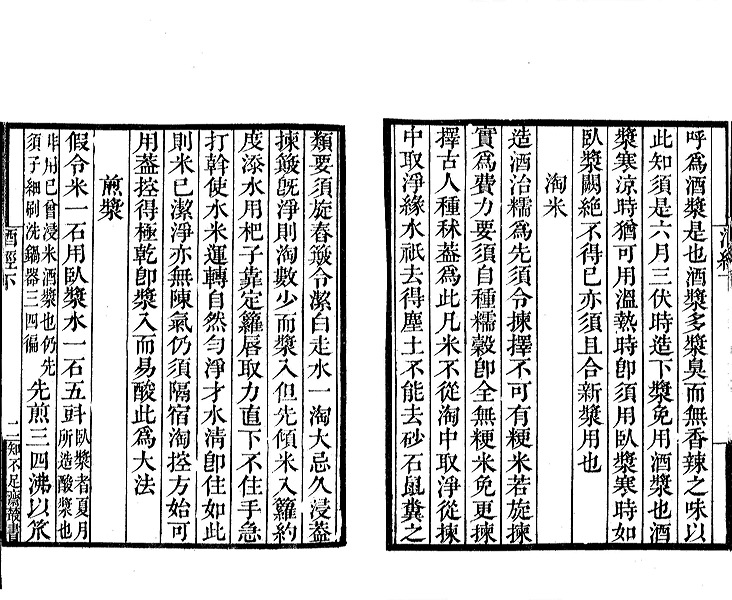 呼爲酒漿是也酒漿多漿臭而無香辣之味以
此知須是六月三伏時造下漿免用酒漿也酒
漿寒涼時猶可用溫熱時卽須用臥漿寒時如
臥漿闕絕不得已亦須且合新漿用也
淘米
造酒治糯爲先須令揀擇不可有粳米若旋揀
實爲費力要須自種糯穀卽全無粳米免更揀
擇古人種秫葢爲此凡米不從淘中取淨從揀
中取淨緣水祇去得塵土不能去砂石鼠糞之
類要須旋舂簸令潔白走水一淘大忌久浸葢
揀簸旣淨則淘數少而漿入但先傾米入籮約
度添水用杷子靠定籮唇取力直下不住手急
打斡使水米運轉自然勻淨才水清卽住如此
則米已潔淨亦無陳氣仍須隔宿淘控方始可
用葢控得極乾卽漿入而易酸此爲大法
煎漿
假令米一石用臥漿水一石五㪷臥漿者夏月所造酸漿也
非用已曾浸米酒漿也仍先須子細刷洗鍋器三四徧先煎三四沸以笊
酒經下
二
知不足齋叢書